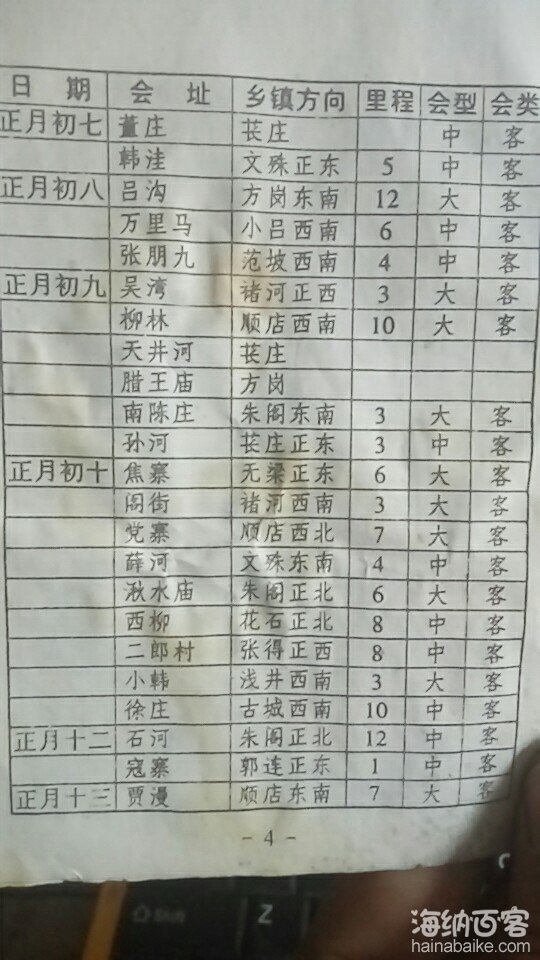 日 期 会 址 乡镇方向 里程 会型 会类
正月初七 董庄 苌庄 中 客
韩洼 文殊正东 5 中 客
正月初八 吕沟 方岗东南 12 大 客
万里马 小吕西南 6 中 客
张朋九 范坡西南 4 中 客
正月初九 吴湾 褚河正西 3 大 客
柳林 顺店西南 10 大 客
天井河 苌庄
腊王庙 方岗
南陈庄 朱阁东南 3 大 客
孙河 苌庄正东 3 中 客
正月初十 焦寨 无梁正东 6 大 客
阁街 褚河西南 3 大 客
党寨 顺店西北 7 大 客
薛河 文殊东南 4 中 客
湫水庙 朱阁正北 6 大 客
西柳 花石正北 8 中 客
二郎村 张得正西 8 中 客
小韩 浅井西南 3 大 客
徐庄 古城西南 10 中 客
正月十二 石河 朱阁正北 12 中 客
寇寨 郭连正东 1 中 客
正月十三 贾漫 顺店东南 7 大 客
- 4 -
Shift Z
海纳百客
hainabaike.com